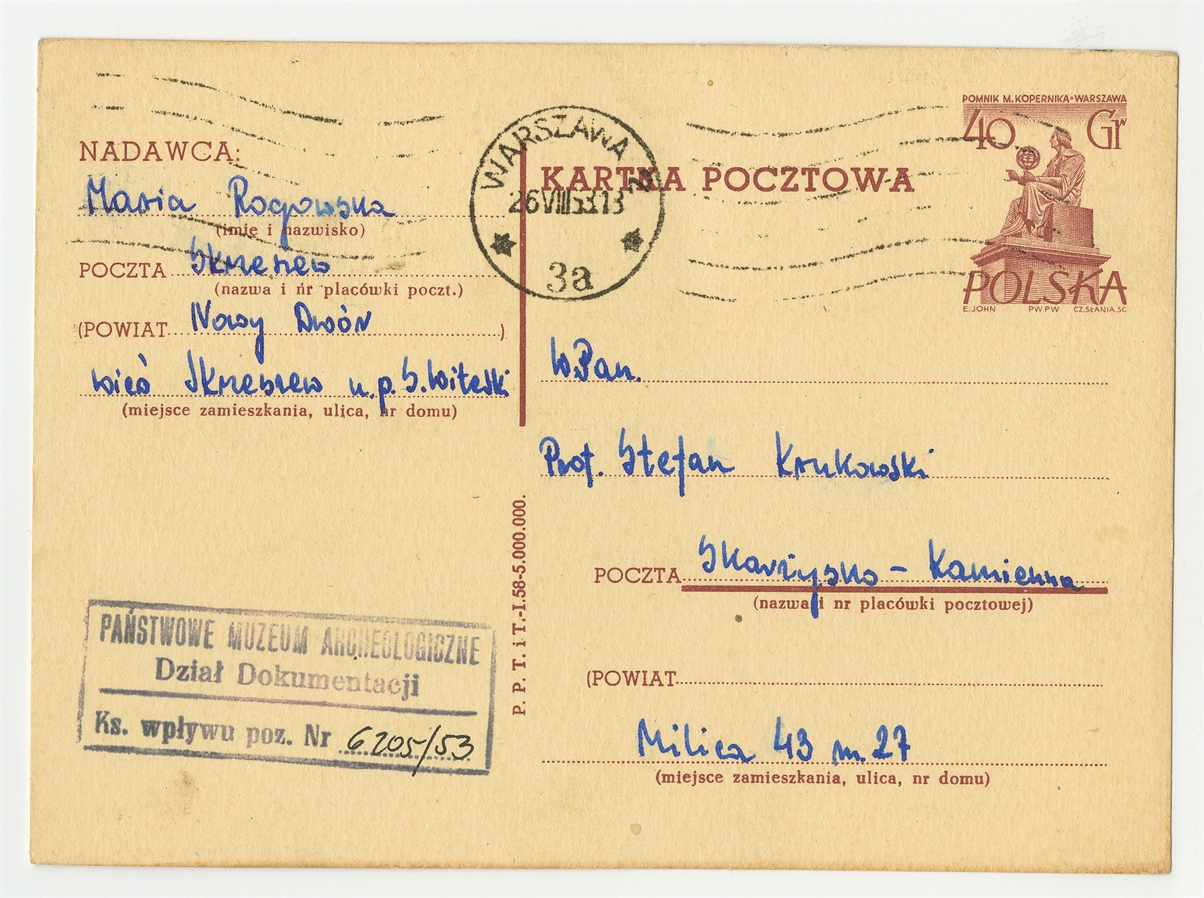 NADAWCA:
Maria Rogowska
(imię i nazwisko)
POCZTA Skrzeszew
(nazwa i nr placówki poczt.)
(POWIAT Nowy Dwór)
wieś Skrzeszew u.p. S. Witeski
(miejsce zamieszkania, ulica, nr domu)
PAŃSTWOWE MUZEUM ARCHEOLOGICZNE
Dział Dokumentacji
Ks. wpływu poz. Nr 6205/53
WARSZAWA 2
26 VIII 58.13
3a
P. P. T. i T.-I.58-5.000.000.
KARTKA POCZTOWA
POMNIK M. KOPERNIKA-WARSZAWA
40 Gr
POLSKA
E.JOHN PWPW CZ.SŁANIA.SC
W.Pan.
Prof. Stefan Krukowski
POCZTA Skarżysko-Kamienna
(nazwa i nr placówki pocztowej)
(POWIAT
Milica 43 m. 27
(miejsce zamieszkania, ulica, nr domu)